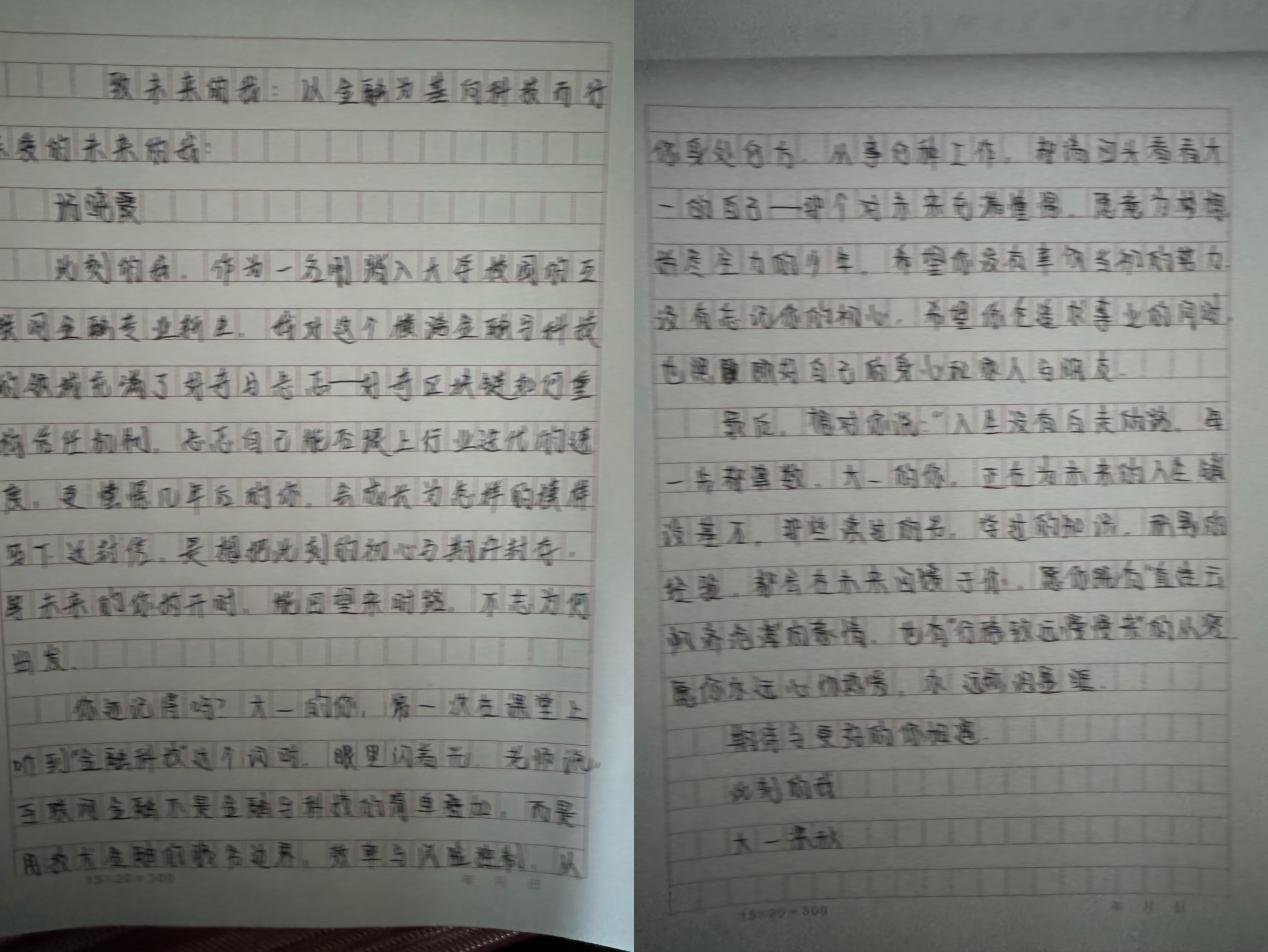 致未来的我：以金融为基向科技而行
爱的未来的我：
展信安
此刻的我，作为一名刚踏入大学校园的互
联网金融专业新生，站对这个横跨金融与科技
的领域充满了好奇与忐忑——好奇区块链如何重
构信任机制，忐忑自己能否跟上行业迭代的速
度，更憧憬几年后的你，会成长为怎样的模样
写下这封信，是想把此刻的初心与期许封存，
等未来的你拆开时，能回望来时路，不忘为何
出发。
你还记得吗？大一的你，第一次在课堂上
听到“金融科技”这个词时，眼里闪着光，老师说，
互联网金融不是金融与科技的简单叠加，而是
用技术金融的服务边界，效率与风险控制，从
15×20=300 年 月 日
你身处何方，从事何种工作，都请回头看看大
一的自己——那个对未来充满憧憬，愿意为梦想
全力的少年，希望你没有辜负当初的努力，
没有忘记你的初心，希望你在追求事业的同时，
也照顾好自己的身心和家人与朋友。
最后，想对你说：“人生没有白走的路，每
一步都算数，大一的你，正在为未来的人生铺
设基石，那些读过的书，学过的知识，积累的
经验，都会在未来回馈于你，愿你既有“直挂云
帆济沧海”的豪情，也有“行稳致远慢慢来”的从容
愿你永远心怀热爱，永远
期待与更好的你相遇。
此刻的我
大一
15×20=300 年 月 日